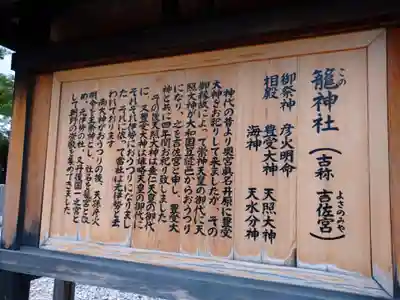 このよさのみや
籠神社(古称 吉佐宮)
御祭神 彦火明命
相殿 豊受大神 天照大神
海神 天水分神
神代の昔より奥宮眞名井原に豊受
大神をお祀りして来ましたが、その
御縁故によって崇神天皇の御代に天
照大神が大和国笠縫邑からおうつり
になり、之を吉佐宮と申し、豊受大
神と共に四年間お祀り致しました。
その後天照大神は垂仁天皇の御代
に、又豊受大神は雄略天皇の御代に
それぞれ伊勢におうつりになりまし
た。それに依って當社は元伊勢と云
われております。
両大神がおうつりの後、天孫彦火
明命を主祭神とし、社名を籠宮と改
め、元伊勢の社、又丹後国一之宮と
して朝野の崇敬を集めてきました